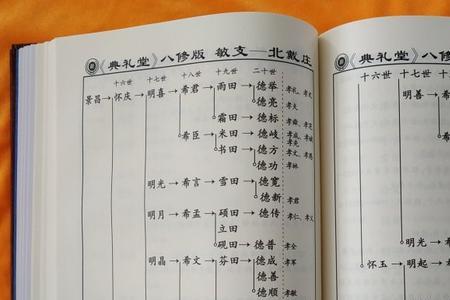 《典礼堂》八修版 敏支—北戴庄
十六世 十七世 十八世 十九世 二十世
景昌→怀庆→明喜→希君→雨田→德举
德亮
霜田→德标
希臣→米田→德岐
书田→德方
德功
孝林
明光→希言→雪田→德宽
德新 孝君
明月→希孟→硕田→德传 孝仁、孝义
立田
砚田→德普 孝全
明晶→希文→芬田→德成 孝军
德善
德顺 孝敏
《典礼堂》八修
十六世 十七世
明善→
明光→
怀玉→明起→